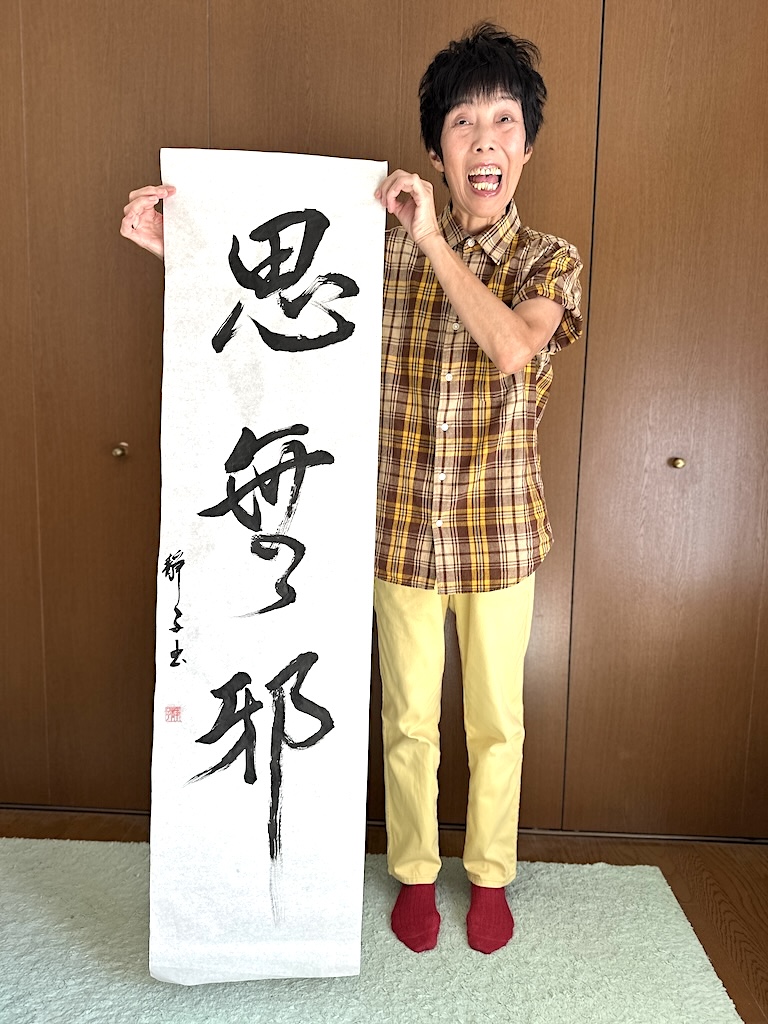 思無邪
静子書